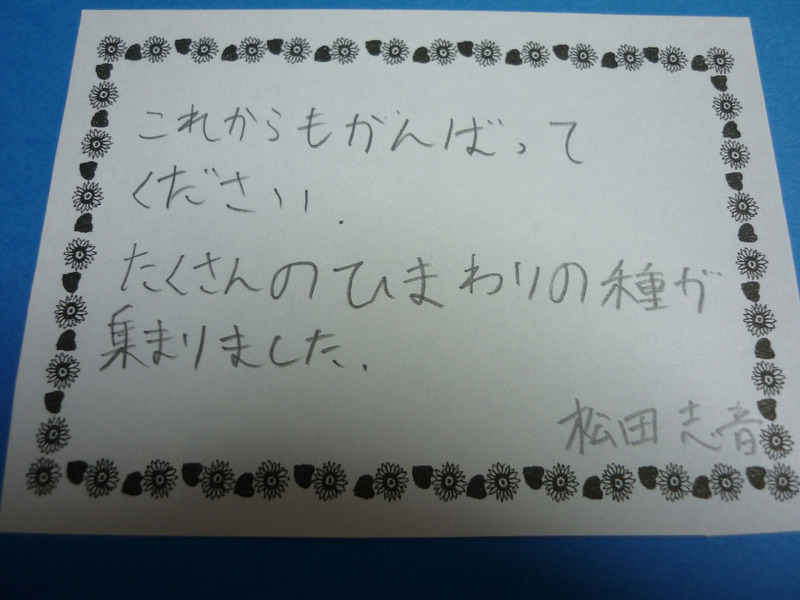 これからもがんばって
ください.
たくさんのひまわりの種が
集まりました.
松田志音